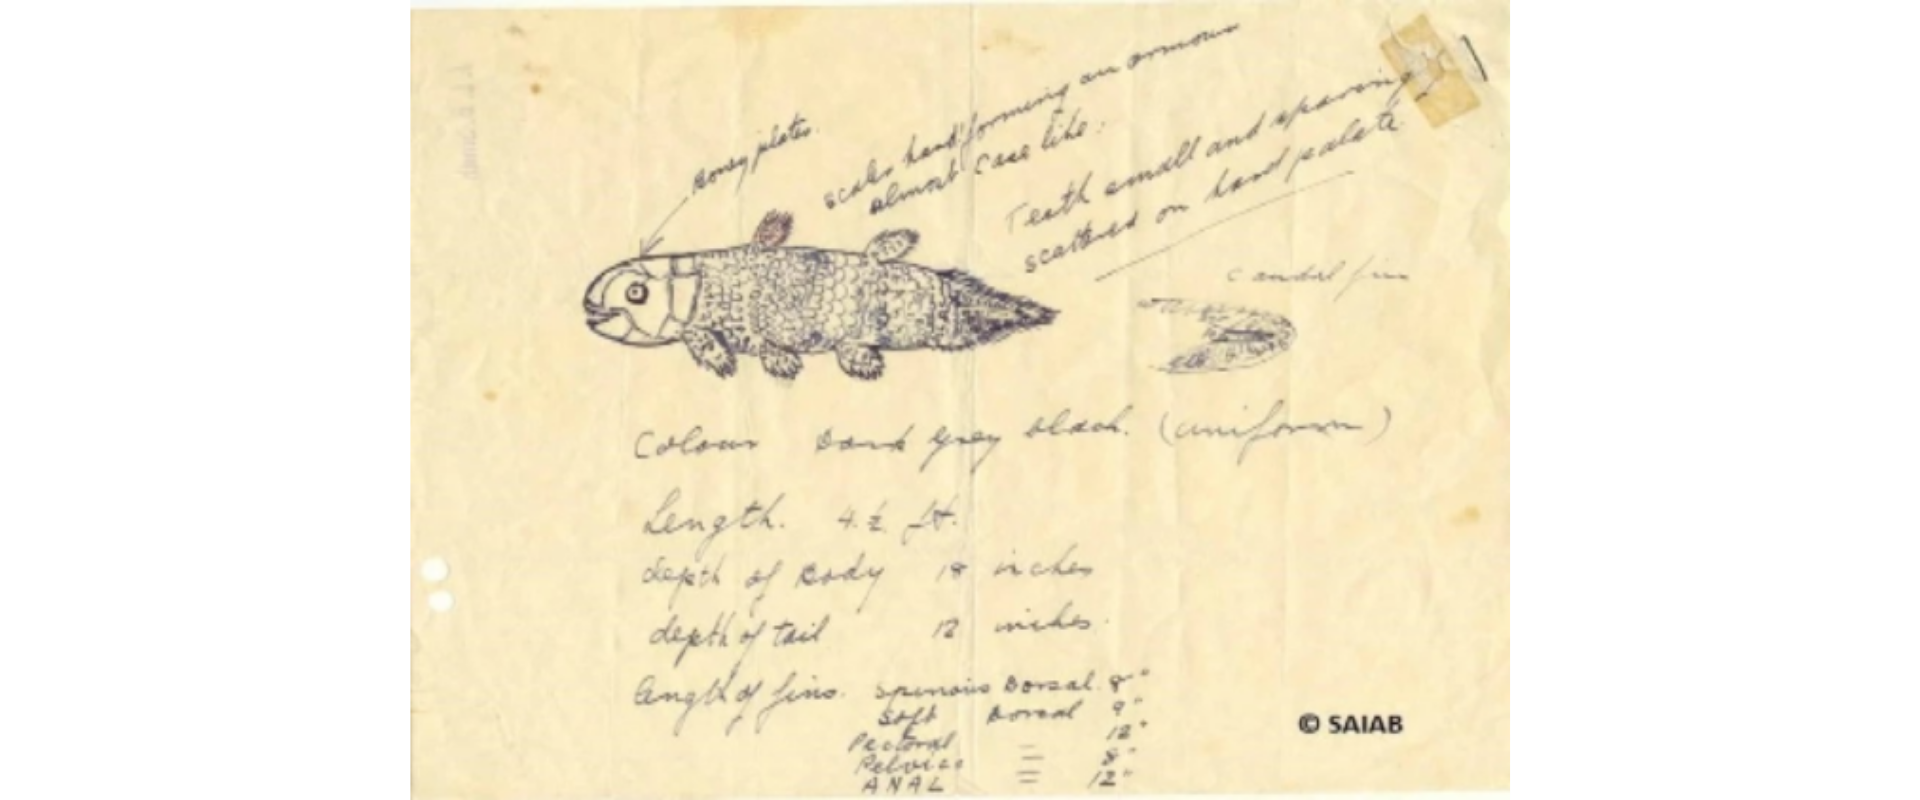 Boney plates.
scales hard forming an armour
almost case like.
Teeth small and sparing
scattered on hard palate
Caudal fin
Colour Dark grey black. (uniform)
Length. 4 ½ ft.
depth of Body 18 inches
depth of tail 12 inches.
length of fins. Spinous Dorsal. 8"
Soft Dorsal 9"
Pectoral 12"
Pelvics = 8"
ANAL = 12"
© SAIAB